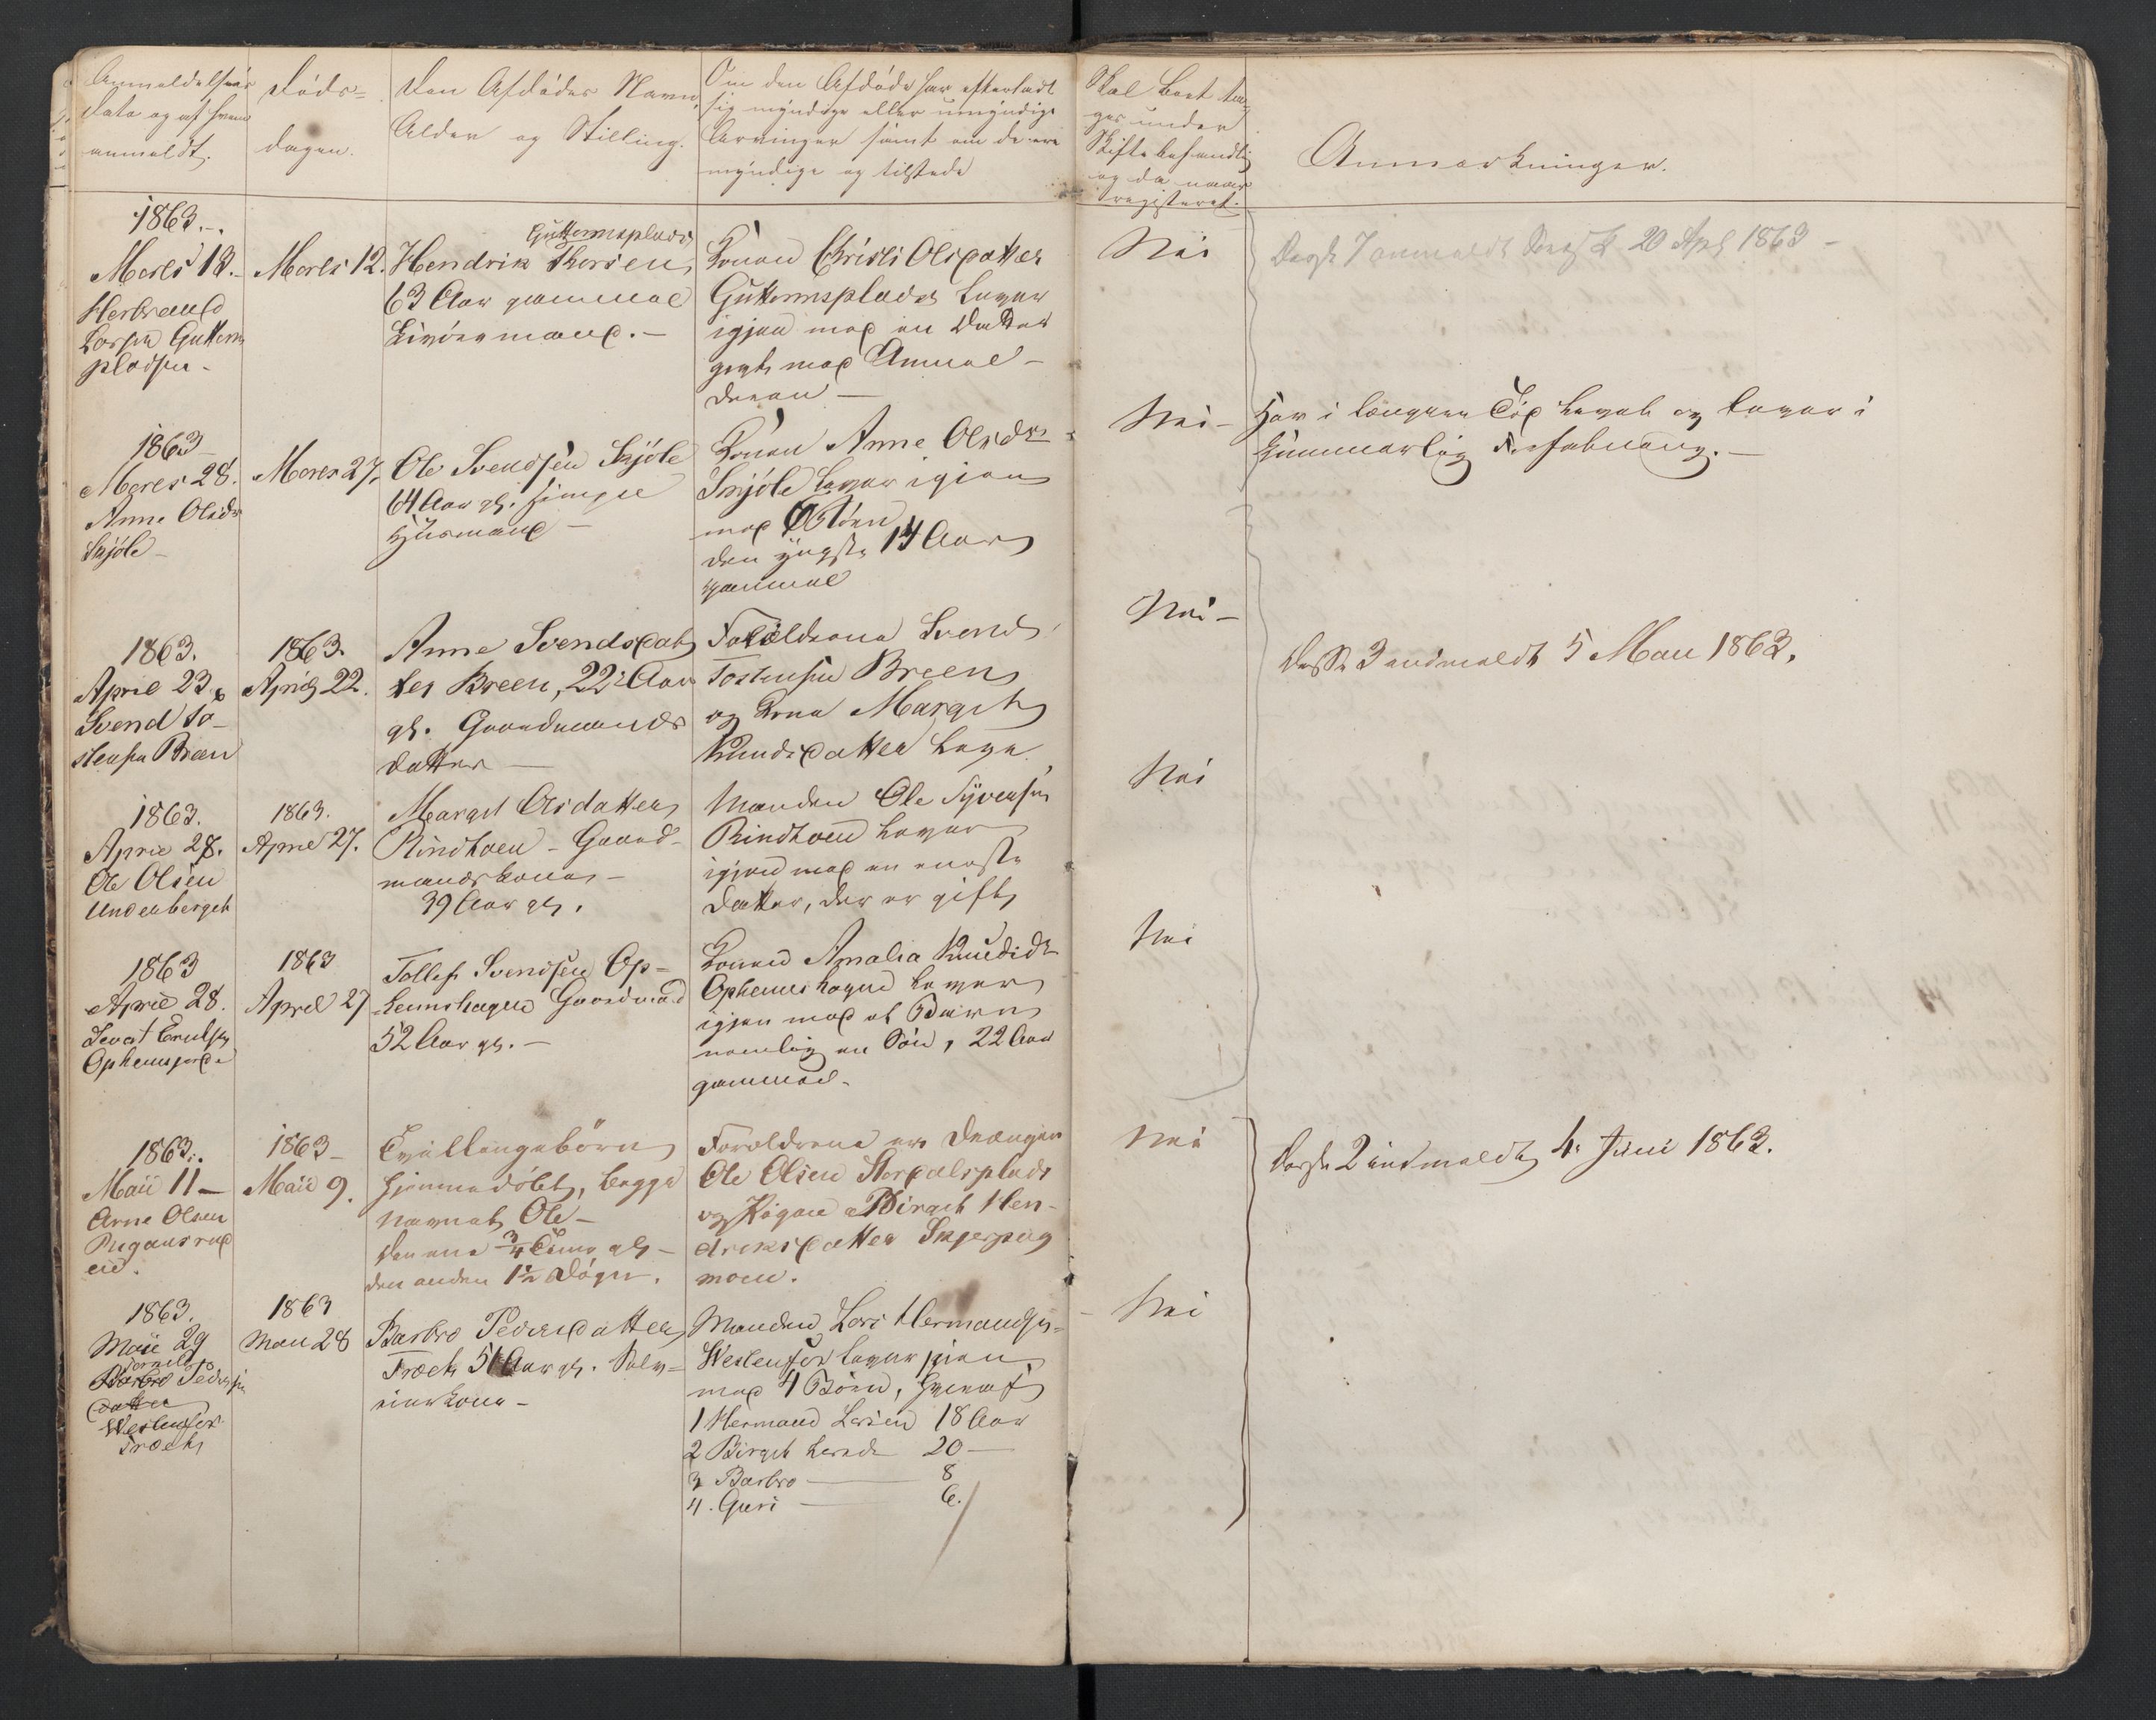 Anmeldelsens
Data og af hvem
anmeldt.
Døds=
dagen.
Den Afdødes Navn,
Alder og Stilling.
Om den Afdøde har efterladt
sig myndige eller umyndige
Arvinger samt om de ere
myndige og tilstede
Skal Boet ta-
ges under
Skiftebehandling
og da naar
registeret.
Anmærkninger.
1863.-.
Marts 13.-
Herbrand
Larsen Guttorms
pladsen -
Marts 12.
Guttormsplads
Hendrik Thorsen
63 Aar gammel
Livøremand.-
Konen Christi Olsdatter
Guttormsplads lever
igjen med en Datter
gift med Anmel-
deren -
Nei
20 Apl 1863 -
1863 -
Marts 28.
Anne Olsdr
Skjøle -
Marts 27.
Ole Svendsen Skjøle
64 Aar gl.
Husmand -
Konen Anne Olsdr
Skjøle lever igien
med 6 Børn
den yngste 14 Aar
gammel
Nei -
Har i længere Tid levet og lever i
kummerlig Forfatning. -
1863.
April 23.
Svend To-
stensen Breen
1863.
April 22.
Anne Svendsdat
ter Breen, 22 Aar
gl. Gaardmands
datter -
Forældrene Svend
Tostensen Breen
og Kone Margit
Knudsdatter leve.
Nei -
Disse 3 indmeldt 5 Mai 1863.
1863.
April 28.
Ole Olsen
Underberget
1863.
April 27.
Margit Olsdatter
Rindhoen - Gaard-
mandskone -
39 Aar gl.
Manden Ole Syversen
Rindhoen lever
igjen med en eneste
Datter, der er gift
Nei
1863
April 28.
Opheimsjorde
1863
April 27
Tollef Svendsen Op=
heimshagen Gaardmand
52 Aar gl. -
Konen Amalia Knudsdr
Opheimshagen lever
igjen med et Barn
nemlig en Søn, 22 Aar
gammel.
Nei
1863.
Maii 11 -
Arne Olsen
1863 -
Maii 9.
Tvillingebørn
hjemmedøbt, begge
navnet Ole -
den ene 3/4 Time gl -
den anden 1 1/2 Døgn.
Forældrene ere Drengen
Ole Olsen
og Pigen Birgit Hen-
driksdatter
moen.
Nei
Disse 2 indmeldt 4. Juni 1863.
1863.
Maii 29
Barbro Peders
datter
1863
Maii 28
Barbro Pedersdatter
Træet 51 Aar gl. Selv-
eierkone -
Manden Lars Hermandsen
lever igien
med 4 Børn, hvoraf
1 Hermand Larsen 18 Aar
2 Birgit Larsdr 20 -
3 Barbro - 8
4. Guri - 6.
Nei